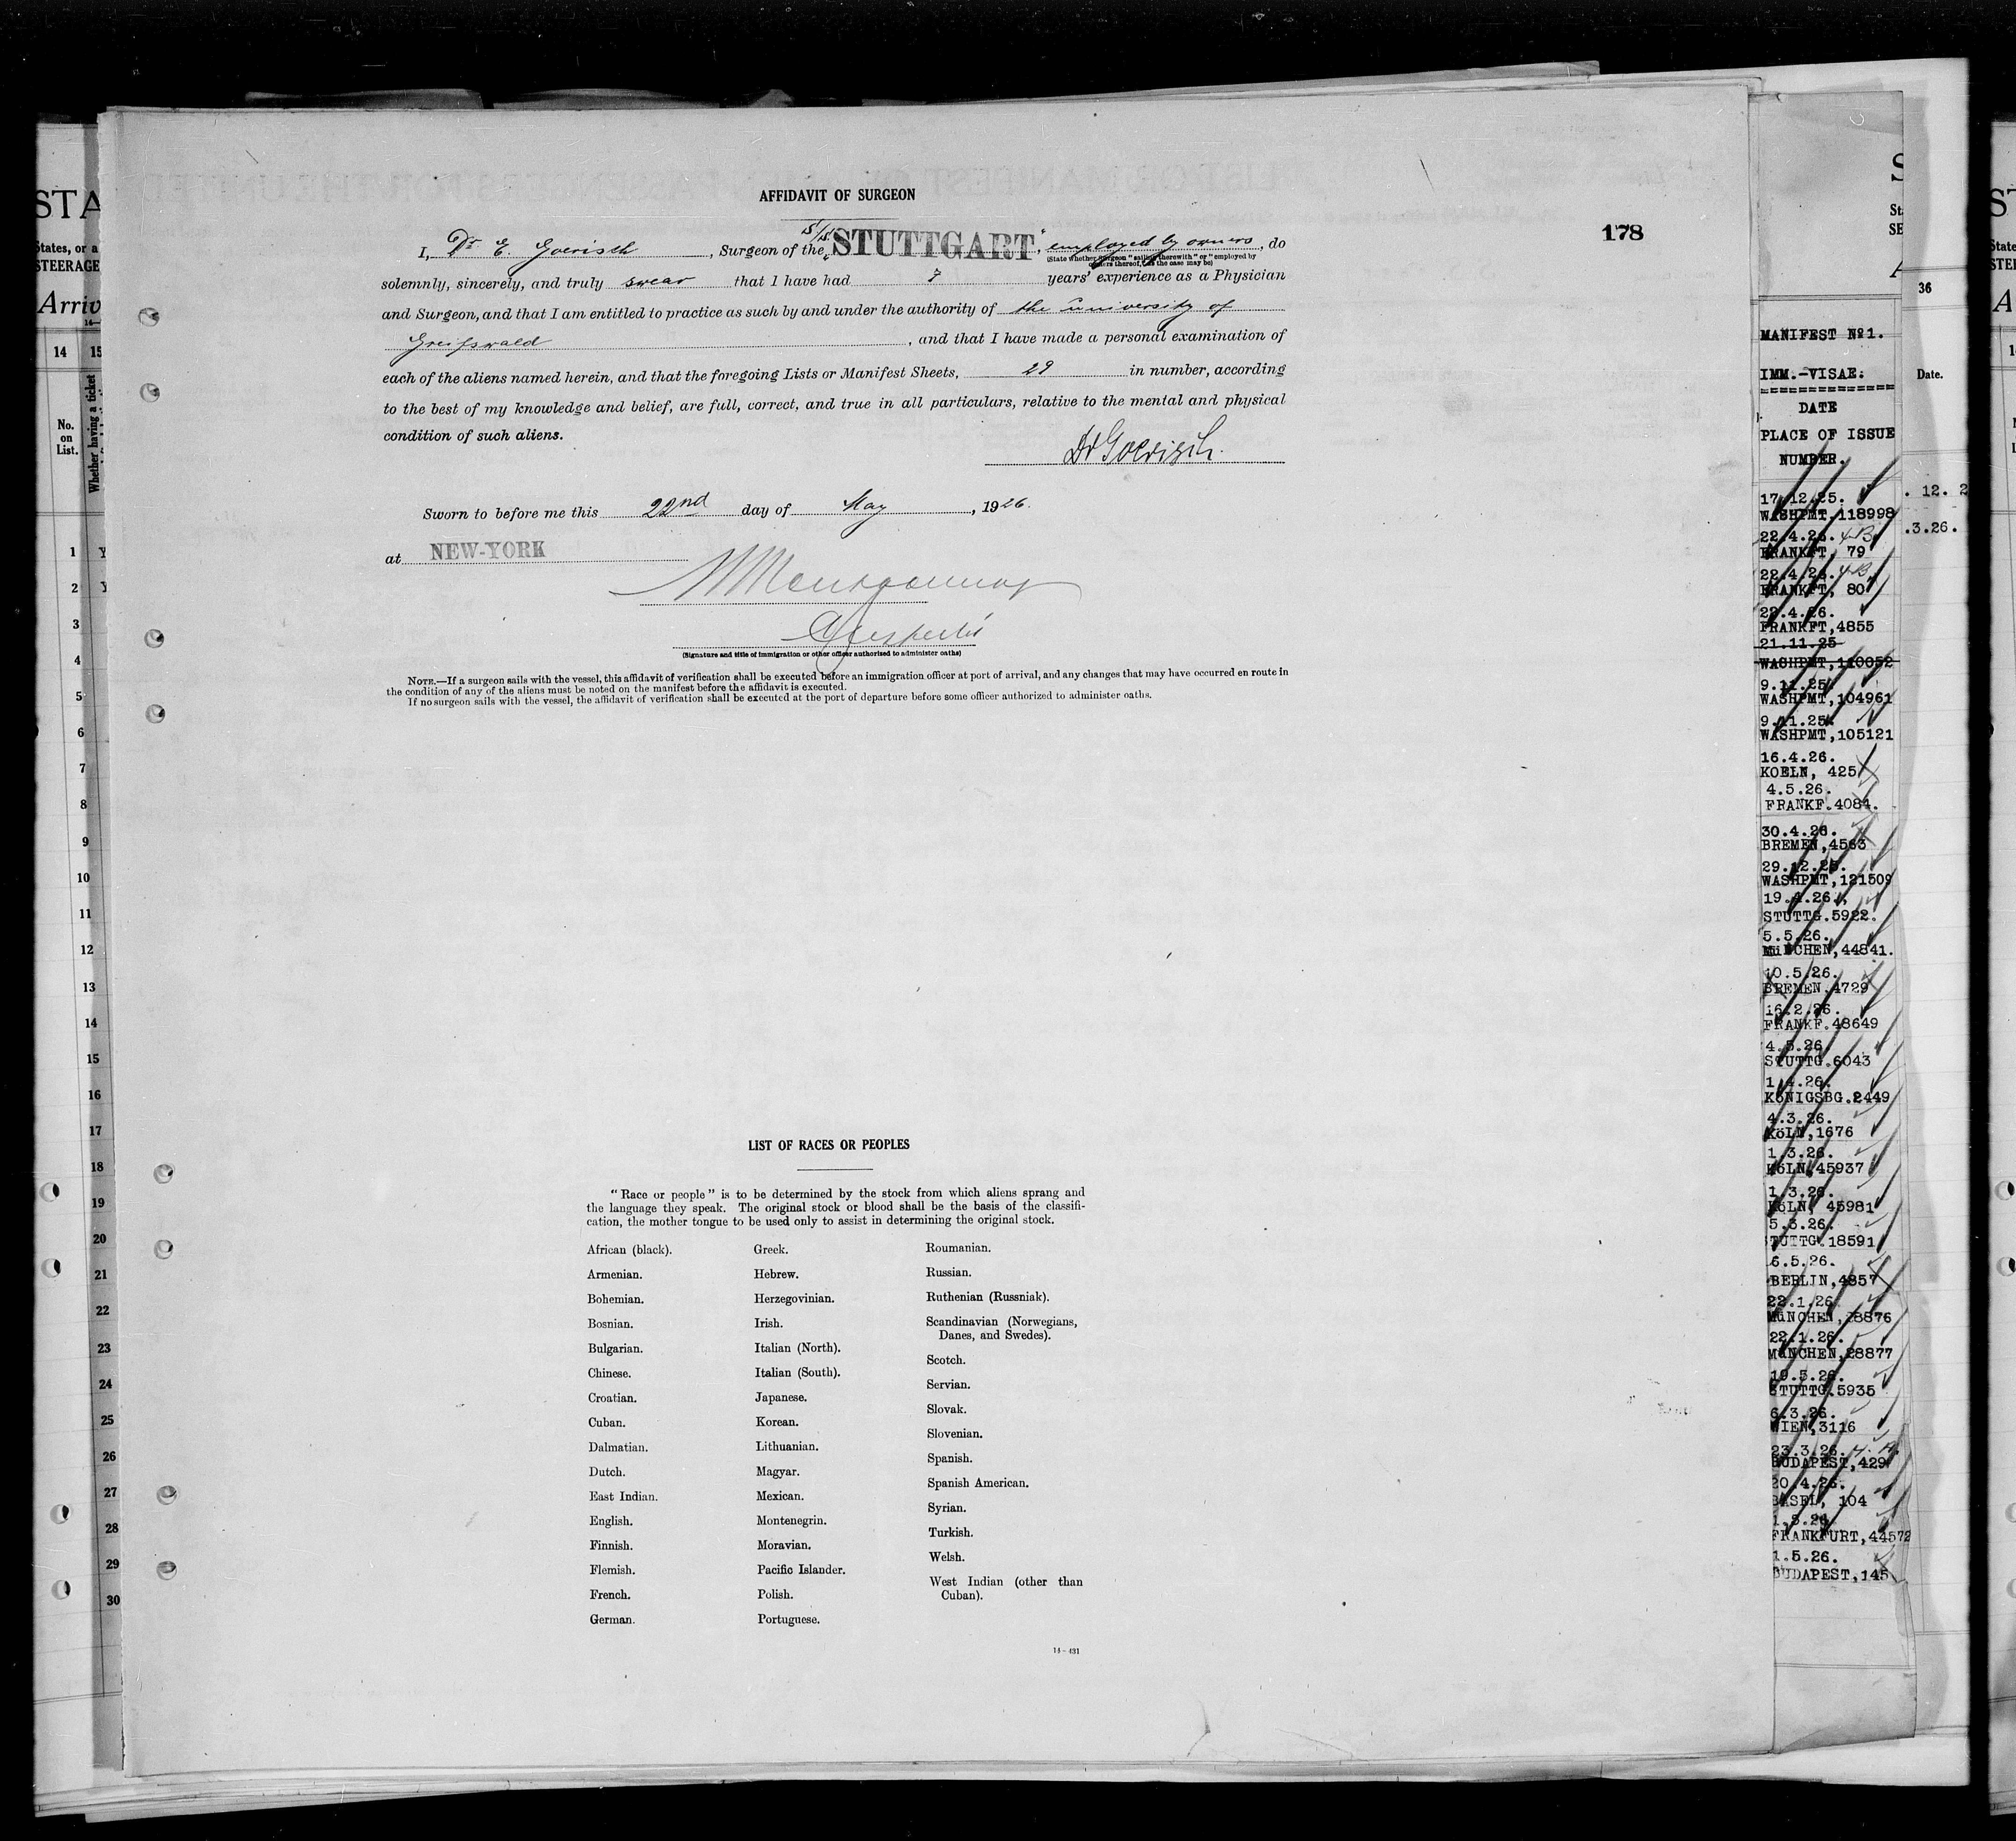 AFFIDAVIT OF SURGEON
178
I, Dr E. Goerisch, Surgeon of the S/S. "STUTTGART", employed by owners, do
(State whether Surgeon "sailing therewith" or "employed by
owners thereof," as the case may be)
solemnly, sincerely, and truly swear that I have had 7 years' experience as a Physician
and Surgeon, and that I am entitled to practice as such by and under the authority of the university of
Greifswald, and that I have made a personal examination of
each of the aliens named herein, and that the foregoing Lists or Manifest Sheets, 29 in number, according
to the best of my knowledge and belief, are full, correct, and true in all particulars, relative to the mental and physical
condition of such aliens.
Dr Goerisch.
Sworn to before me this 22nd day of May, 1926.
at NEW-YORK
(Signature and title of immigration or other officer authorized to administer oaths)
NOTE.—If a surgeon sails with the vessel, this affidavit of verification shall be executed before an immigration officer at port of arrival, and any changes that may have occurred en route in
the condition of any of the aliens must be noted on the manifest before the affidavit is executed.
If no surgeon sails with the vessel, the affidavit of verification shall be executed at the port of departure before some officer authorized to administer oaths.
LIST OF RACES OR PEOPLES
"Race or people" is to be determined by the stock from which aliens sprang and
the language they speak. The original stock or blood shall be the basis of the classifi-
cation, the mother tongue to be used only to assist in determining the original stock.
African (black).
Armenian.
Bohemian.
Bosnian.
Bulgarian.
Chinese.
Croatian.
Cuban.
Dalmatian.
Dutch.
East Indian.
English.
Finnish.
Flemish.
French.
German.
Greek.
Hebrew.
Herzegovinian.
Irish.
Italian (North).
Italian (South).
Japanese.
Korean.
Lithuanian.
Magyar.
Mexican.
Montenegrin.
Moravian.
Pacific Islander.
Polish.
Portuguese.
Roumanian.
Russian.
Ruthenian (Russniak).
Scandinavian (Norwegians,
Danes, and Swedes).
Scotch.
Servian.
Slovak.
Slovenian.
Spanish.
Spanish American.
Syrian.
Turkish.
Welsh.
West Indian (other than
Cuban).
14—431
STA
States, or a
STEERAGE
Arriv
14 15
No.
on
List.
Whether having a ticket
1
2
3
4
5
6
7
8
9
10
11
12
13
14
15
16
17
18
19
20
21
22
23
24
25
26
27
28
29
30
MANIFEST No1.
IMM.-VISAE:
DATE
PLACE OF ISSUE
NUMBER.
17.12.25.
WASHPMT.118998
22.4.26. 4-B
FRANKFT, 79
22.4.26. 4-B
FRANKFT, 80
22.4.26.
FRANKFT,4855
21.11.25
WASHPMT,110052
9.11.25.
WASHPMT,104961
9.11.25.
WASHPMT,105121
16.4.26.
KOELN, 425
4.5.26.
FRANKF.4084.
30.4.26.
BREMEN,4563
29.12.25.
WASHPMT,121509
19.4.26.
STUTTG.5922.
5.5.26.
MüNCHEN,44841.
10.5.26.
BREMEN.4729
16.2.26.
FRANKF.48649
4.5.26.
STUTTG.6043
1.4.26.
KöNIGSBG.2449
4.3.26.
KöLN,1676
1.3.26.
KöLN,45937
1.3.26.
KöLN, 45981
5.3.26.
TUTTG.18591
6.5.26.
BERLIN,4857
22.1.26.
MüNCHEN,28876
22.1.26.
MüNCHEN,28877
19.5.26.
STUTTG.5935
6.3.26.
WIEN,3116
23.3.26.
BUDAPEST,429
20.4.26.
BASEL, 104
FRANKFURT,44572
1.5.26.
BUDAPEST,145
36
Date.
. 12. 2
.3.26.